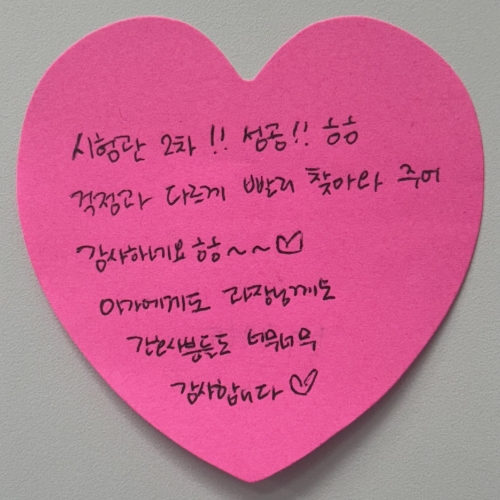 시험관 2차 !! 성공!! ㅎㅎ
걱정과 다르게 빨리 찾아와 주어
감사하네요 ㅎㅎ~~♡
아가에게도 과장님께도
간호사분들도 너무너무
감사합니다 ♡